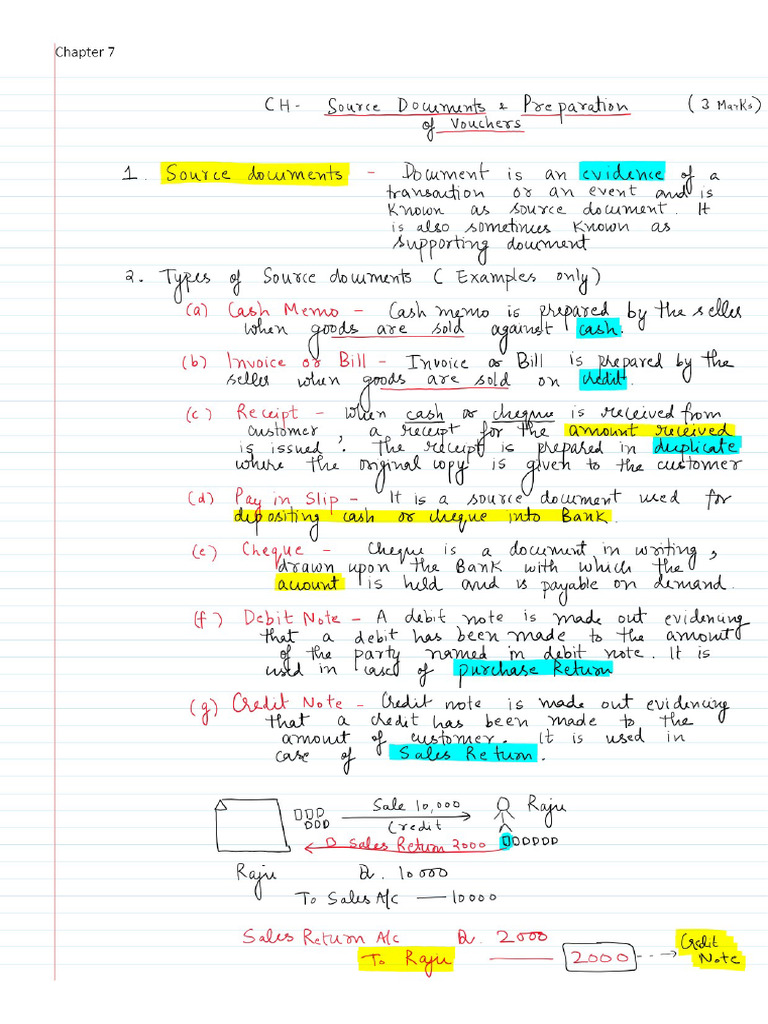 Chapter 7
CH- Source Documents & Preparation (3 Marks)
of Vouchers
1. Source documents - Document is an evidence of a
transaction or an event and is
known as source document. It
is also sometimes known as
supporting document
2. Types of Source documents (Examples only)
(a) Cash Memo - Cash memo is prepared by the seller
when goods are sold against cash.
(b) Invoice or Bill - Invoice or Bill is prepared by the
seller when goods are sold on credit.
(c) Receipt - When cash or cheque is received from
customer, a receipt for the amount received
is issued. The receipt is prepared in duplicate
where the original copy is given to the customer
(d) Pay in Slip - It is a source document used for
depositing cash or cheque into Bank.
(e) Cheque - Cheque is a document in writing,
drawn upon the Bank with which the
account is held and is payable on demand.
(f) Debit Note - A debit note is made out evidencing
that a debit has been made to the amount
of the party named in debit note. It is
used in case of purchase Return
(g) Credit Note - Credit note is made out evidencing
that a credit has been made to the
amount of customer. It is used in
case of Sales Return.
Sale 10,000 Raju
Credit
Sales Return 2000
Raju Dr. 10000
To Sales A/c — 10000
Sales Return A/c Dr. 2000
To Raju — 2000 --→ Credit Note